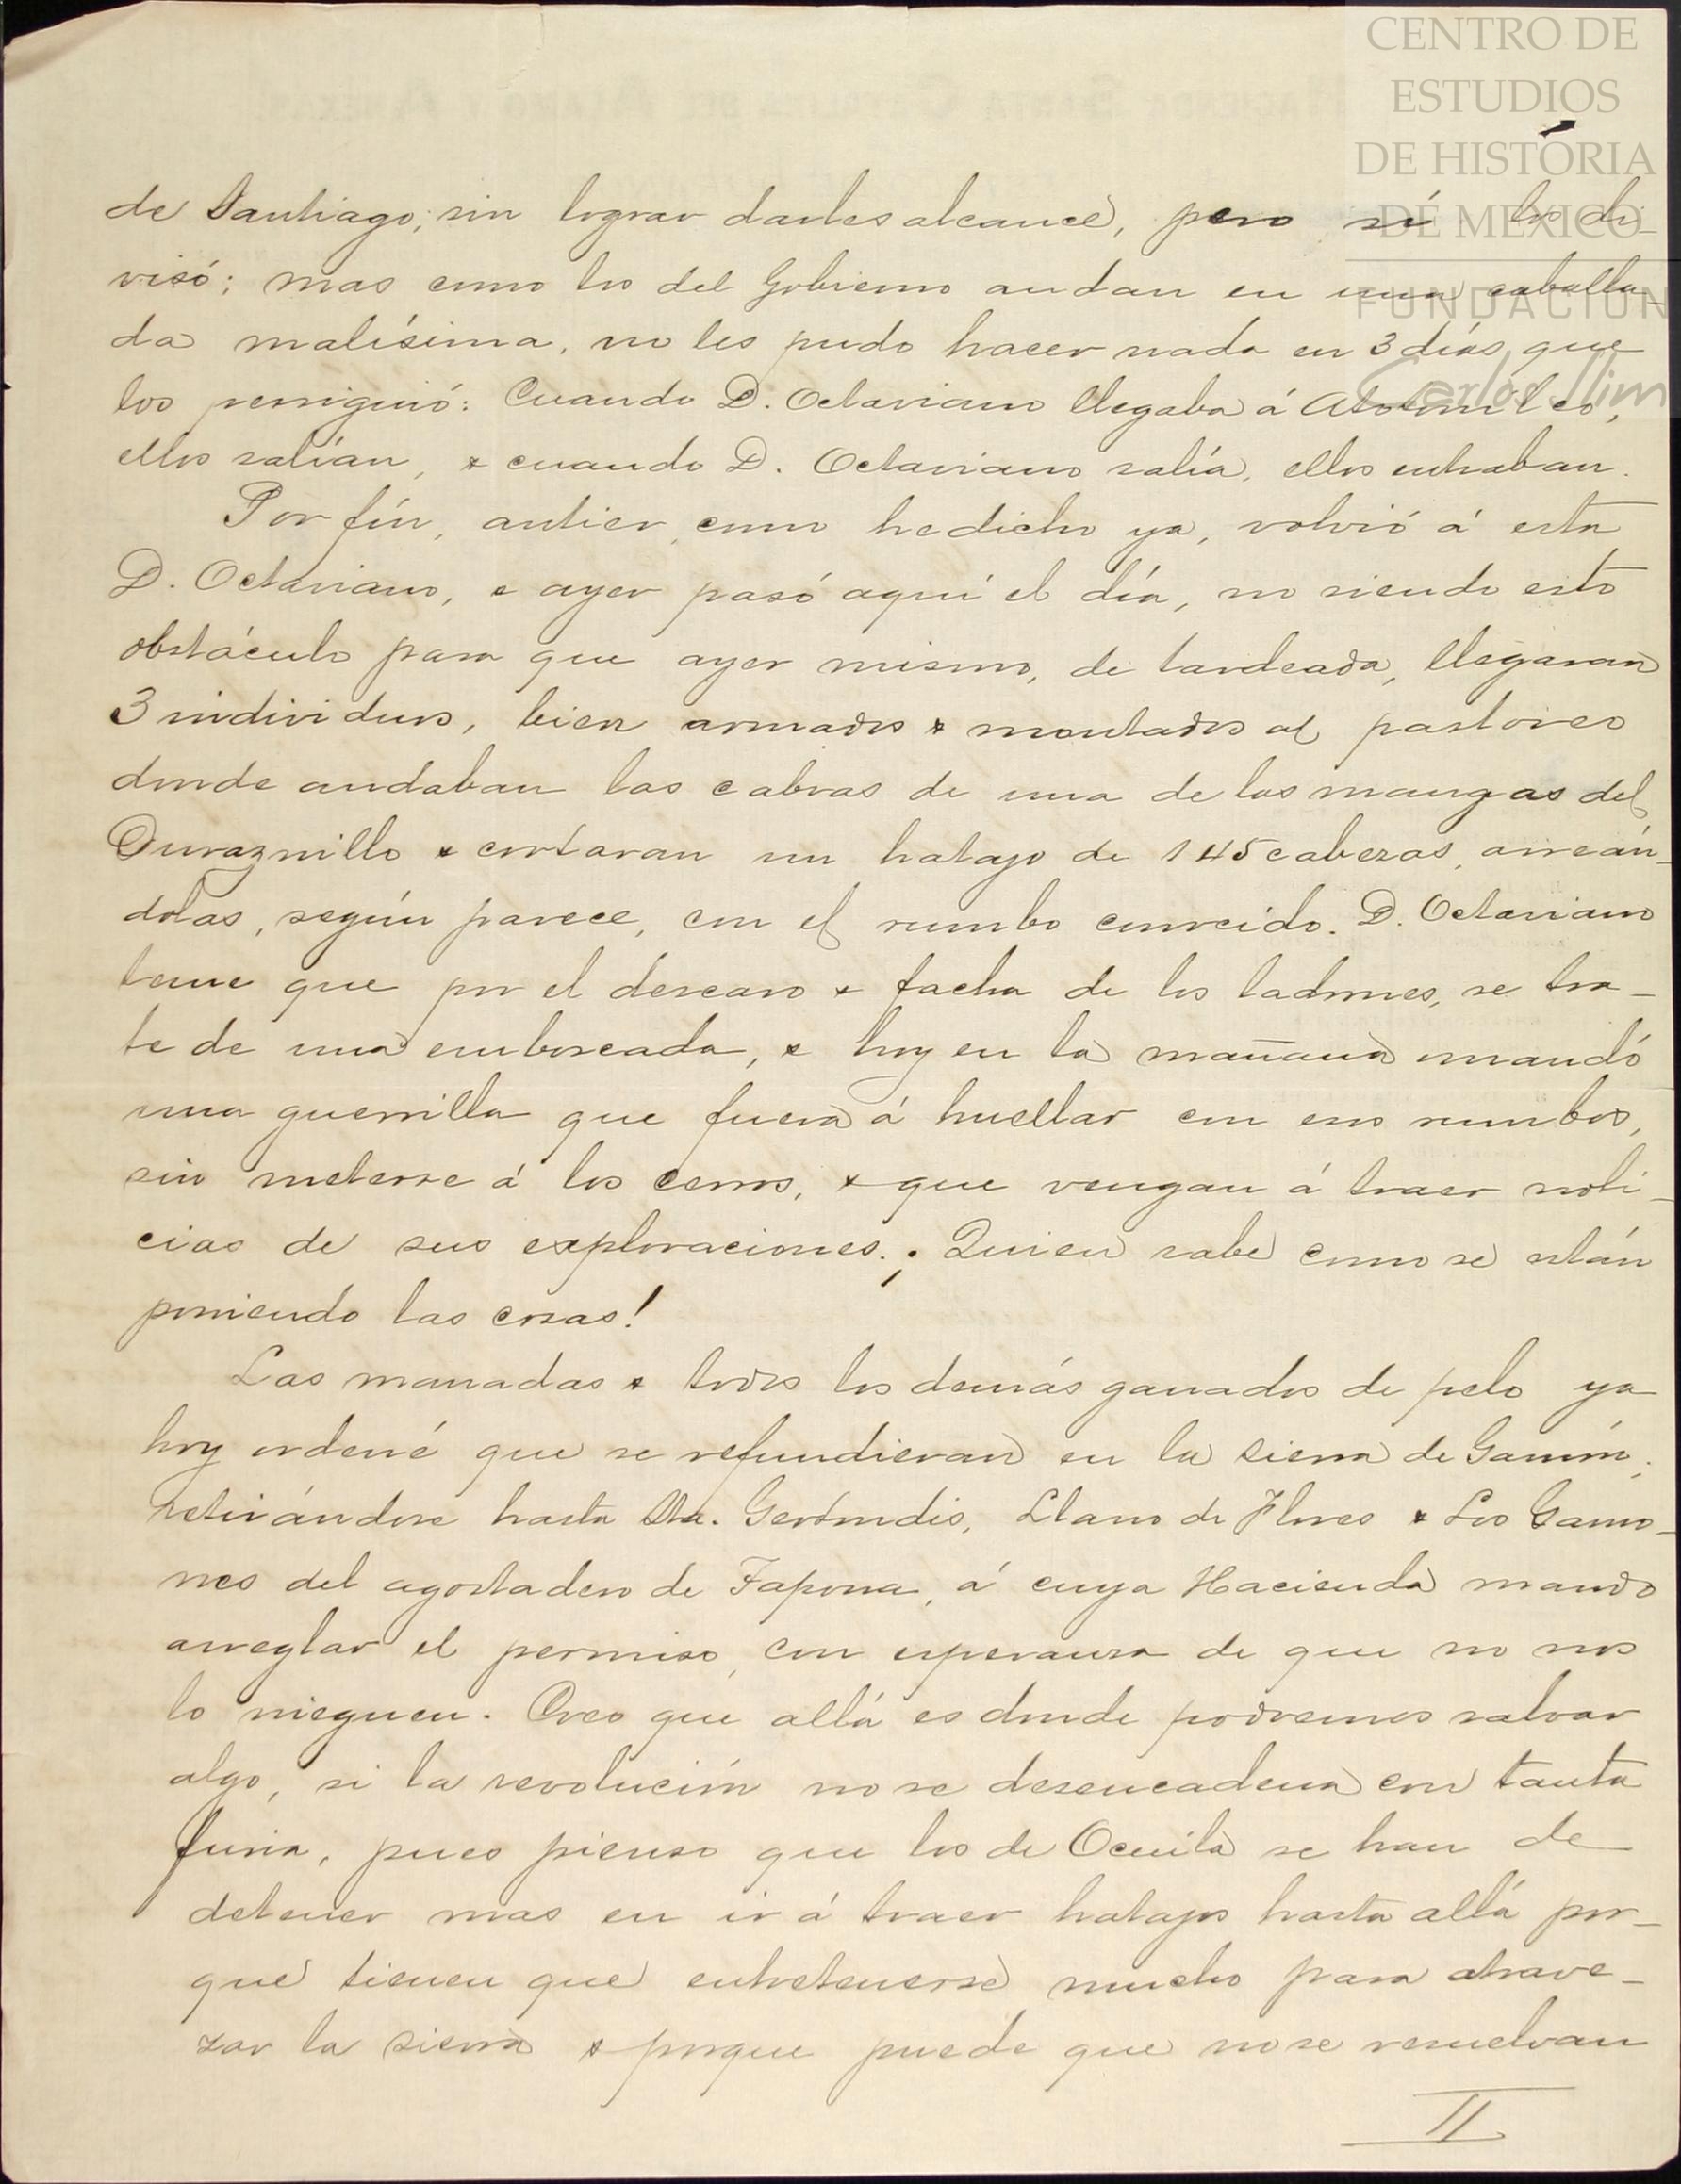 CENTRO DE
ESTUDIOS
DE HISTORIA
DE MEXICO
FUNDACIÓN
Carlos Slim
de Santiago; sin lograr darles alcance, pero sí los di-
visó; mas como los del Gobierno andan en una caballa-
da malísima, no les pudo hacer nada en 3 días que
los persiguió: Cuando D. Octaviano llegaba á Atotonilco,
ellos salían, & cuando D. Octaviano salía, ellos entraban.
Por fín, antier, como he dicho ya, volvió á esta
D. Octaviano, & ayer pasó aquí el día, no siendo esto
obstáculo para que ayer mismo, de tardeada, llegaran
3 individuos, bien armados & montados al pastoreo
donde andaban las cabras de una de las mangas del
Duraznillo & cortaran un hatajo de 145 cabezas, arreán-
dolas, según parece, con el rumbo conocido. D. Octaviano
teme que por el descaro & facha de los ladrones, se tra-
te de una emboscada, & hoy en la mañana mandó
una guerrilla que fuera á huellar con esos rumbos,
sin meterse á los cerros, & que vengan á traer noti-
cias de sus exploraciones. ¡Quien sabe como se están
poniendo las cosas!
Las manadas & todos los demás ganados de pelo ya
hoy ordené que se refundieran en la sierra de Gamón,
retirándose hasta Sta. Gertrudis, Llano de Flores & Los Gamo-
nes del agostadero de Tapona, á cuya Hacienda mando
arreglar el permiso, con esperanza de que no nos
lo nieguen. Creo que allá es donde podremos salvar
algo, si la revolución no se desencadena con tanta
furia, pues pienso que los de Ocuila se han de
detener mas en ir á traer hatajos hasta allá por-
que tienen que entretenerse mucho para atrave-
zar la sierra & porque puede que no se resuelvan
II